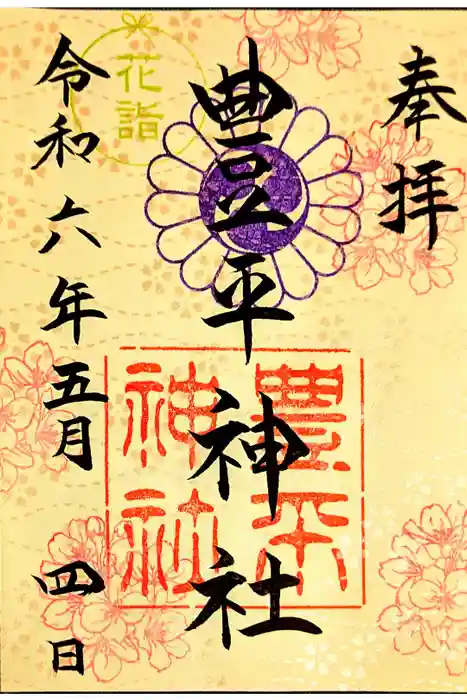 奉拝
豊平神社
豊平
神社
花詣
令和六年五月四日